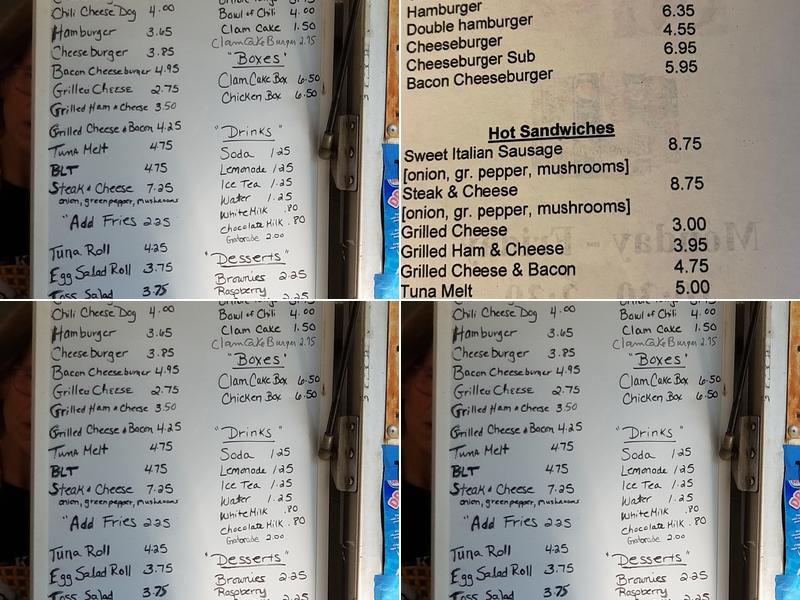 Chili Cheese Dog 4.00
Hamburger 3.65
Cheeseburger 3.85
Bacon Cheeseburger 4.95
Grilled Cheese 2.75
Grilled Ham & Cheese 3.50
Grilled Cheese & Bacon 4.25
Tuna Melt 4.75
BLT 4.75
Steak & Cheese 7.25
onion, green pepper, mushrooms
"Add Fries 2.25
Tuna Roll 4.25
Egg Salad Roll 3.75
Toss Salad 3.75
Bowl of Chili 4.00
Clam Cake 1.50
Clam Cake Burger 2.75
"Boxes"
Clam Cake Box 6.50
Chicken Box 6.50
"Drinks"
Soda 1.25
Lemonade 1.25
Ice Tea 1.25
Water 1.25
White Milk .80
Chocolate Milk .80
Gatorade 2.00
"Desserts"
Brownies 2.25
Raspberry 2.25
Hamburger
Double hamburger 6.35
Cheeseburger 4.55
Cheeseburger Sub 6.95
Bacon Cheeseburger 5.95
Hot Sandwiches
Sweet Italian Sausage 8.75
[onion, gr. pepper, mushrooms]
Steak & Cheese 8.75
[onion, gr. pepper, mushrooms]
Grilled Cheese 3.00
Grilled Ham & Cheese 3.95
Grilled Cheese & Bacon 4.75
Tuna Melt 5.00
Chili Cheese Dog 4.00
Hamburger 3.65
Cheeseburger 3.85
Bacon Cheeseburger 4.95
Grilled Cheese 2.75
Grilled Ham & Cheese 3.50
Grilled Cheese & Bacon 4.25
Tuna Melt 4.75
BLT 4.75
Steak & Cheese 7.25
onion, green pepper, mushrooms
"Add Fries 2.25
Tuna Roll 4.25
Egg Salad Roll 3.75
Toss Salad 3.75
Bowl of Chili 4.00
Clam Cake 1.50
Clam Cake Burger 2.75
"Boxes"
Clam Cake Box 6.50
Chicken Box 6.50
"Drinks"
Soda 1.25
Lemonade 1.25
Ice Tea 1.25
Water 1.25
White Milk .80
Chocolate Milk .80
Gatorade 2.00
"Desserts"
Brownies 2.25
Raspberry
Chili Cheese Dog 4.00
Hamburger 3.65
Cheeseburger 3.85
Bacon Cheeseburger 4.95
Grilled Cheese 2.75
Grilled Ham & Cheese 3.50
Grilled Cheese & Bacon 4.25
Tuna Melt 4.75
BLT 4.75
Steak & Cheese 7.25
onion, green pepper, mushrooms
"Add Fries 2.25
Tuna Roll 4.25
Egg Salad Roll 3.75
Toss Salad 3.75
Bowl of Chili 4.00
Clam Cake 1.50
Clam Cake Burger 2.75
"Boxes"
Clam Cake Box 6.50
Chicken Box 6.50
"Drinks"
Soda 1.25
Lemonade 1.25
Ice Tea 1.25
Water 1.25
White Milk .80
Chocolate Milk .80
Gatorade 2.00
"Desserts"
Brownies 2.25
Raspberry